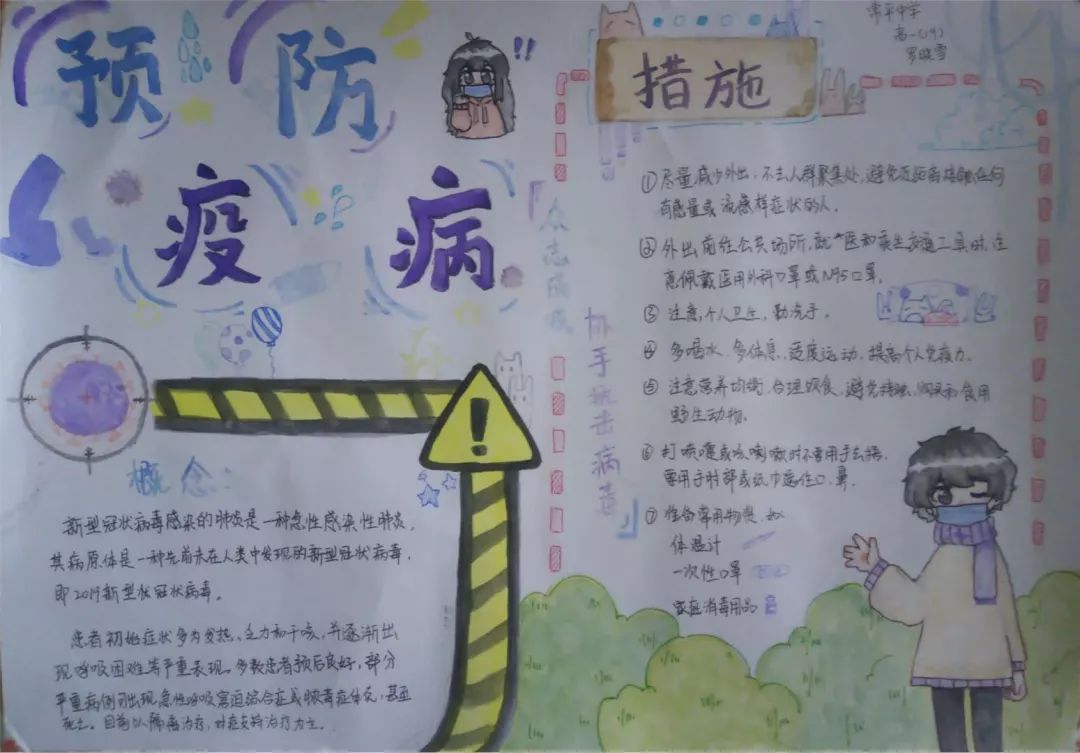 预防
疫病
概念:
新型冠状病毒感染的肺炎是一种急性感染性肺炎，
其病原体是一种先前未在人类中发现的新型冠状病毒，
即2019新型状冠状病毒。
患者初始症状多为发热、乏力和干咳，并逐渐出
现呼吸困难等严重表现。多数患者预后良好，部分
严重病例可出现急性呼吸窘迫综合症或脓毒症休克，甚至
死亡。目前以隔离治疗，对症支持治疗为主。
「众志成城
协手抗击病毒」
措施
常平中学
高一(19)
①尽量减少外出，不去人群聚集处，避免近距离接触任何
有感冒或流感样症状的人。
②外出前往公共场所，就医和乘坐交通工具时，注
意佩戴医用外科口罩或N95口罩。
③注意个人卫生，勤洗手。
④多喝水，多休息，适度运动，提高个人免疫力。
⑤注意营养均衡，合理饮食，避免接触、购买和食用
野生动物。
⑥打喷嚏或咳嗽时不要用手去捂，
要用手肘部或纸巾遮住口、鼻。
⑦准备常用物资，如
体温计
一次性口罩
家庭消毒用品